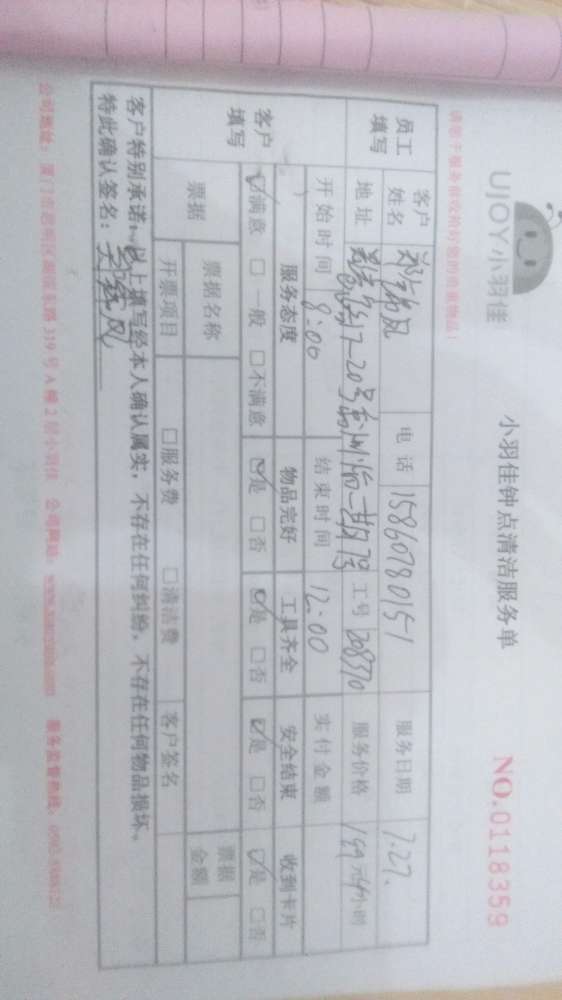 UJOY小羽佳
小羽佳钟点清洁服务单
NO.0118359
请您于服务前收拾好您的贵重物品！
员工填写
客户姓名
电话 15860780151
服务日期 7.27.
地址
工号 208370
服务价格 159元/4小时
客户填写
开始时间 8:00
结束时间 12:00
实付金额
服务态度 物品完好 工具齐全 安全结束 收到卡片
☑满意 □一般 □不满意 ☑是 □否 ☑是 □否 ☑是 □否 ☑是 □否
票据
票据名称
票据金额
开票项目 □服务费 □清洁费 客户签名
客户特别承诺：以上填写经本人确认属实，不存在任何纠纷，不存在任何物品损坏。
特此确认签名：
公司地址：厦门市思明区湖滨东路319号A幢2层小羽佳 公司网站： 服务监督热线：